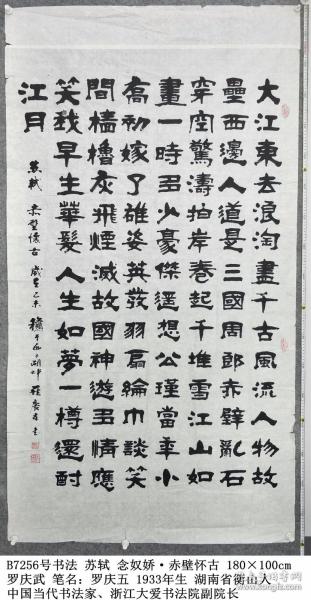 大江東去浪淘盡千古風流人物故
壘西邊人道是三國周郎赤壁亂石
穿空驚濤拍岸卷起千堆雪江山如
畫一時多少豪傑遥想公瑾當年小
喬初嫁了雄姿英發羽扇綸巾談笑
間檣櫓灰飛煙滅故國神遊多情應
笑我早生華髮人生如夢一樽還酹
江月
蘇軾 赤壁懷古 歲在乙未
B7256号书法 苏轼 念奴娇·赤壁怀古 180×100cm
罗庆武 笔名：罗庆五 1933年生 湖南省衡山人
中国当代书法家、浙江大爱书法院副院长